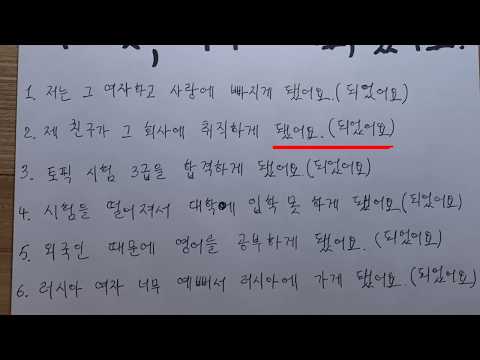 1. 저는 그 여자하고 사랑에 빠지게 됐어요.(되었어요)
2. 제 친구가 그 회사에 취직하게 됐어요.(되었어요)
3. 토픽 시험 3급을 합격하게 됐어요(되었어요)
4. 시험을 떨어져서 대학에 입학 못 하게 됐어요(되었어요)
5. 외국인 때문에 영어를 공부하게 됐어요. (되었어요)
6. 러시아 여자 너무 예뻐서 러시아에 가게 됐어요.(되었어요)